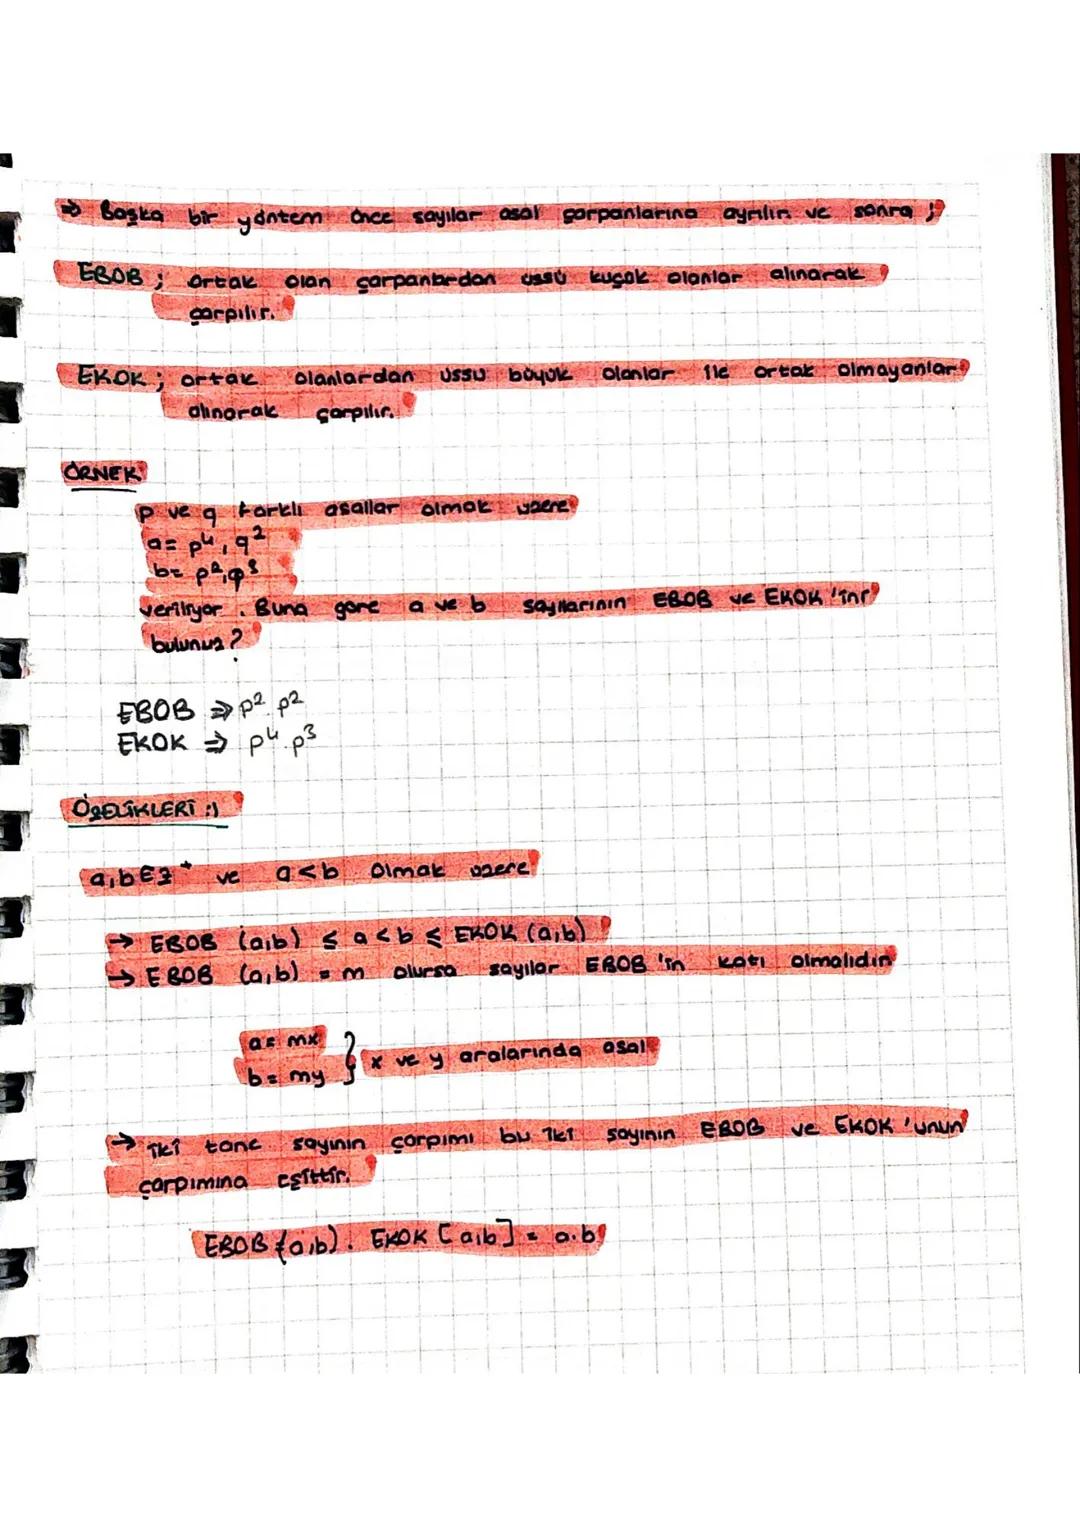 ⇒ Başka bir yöntem önce sayılar asal çarpanlarına ayrılır ve sonra ;
EBOB ; ortak olan çarpanlardan üssü küçük olanlar alınarak
çarpılır.
EKOK ; ortak olanlardan üssü büyük olanlar ile ortak olmayanlar
alınarak çarpılır.
ÖRNEK
p ve q farklı asallar olmak üzere
a= p⁴, q²
b= p², q³
veriliyor. Buna göre a ve b sayılarının EBOB ve EKOK 'ini
bulunuz?
EBOB ⇒ p² . p²
EKOK ⇒ p⁴ . p³
ÖZELİKLERİ :)
a,b∈z⁺ ve a<b olmak üzere
→ EBOB (a,b) ≤ a < b ≤ EKOK (a,b)
→ EBOB (a,b) = m olursa sayılar EBOB 'in katı olmalıdır
a= mx
b= my } x ve y aralarında asal
→ iki tane sayının çarpımı bu iki sayının EBOB ve EKOK 'unun
çarpımına eşittir.
EBOB (a,b) . EKOK [a,b] = a.b